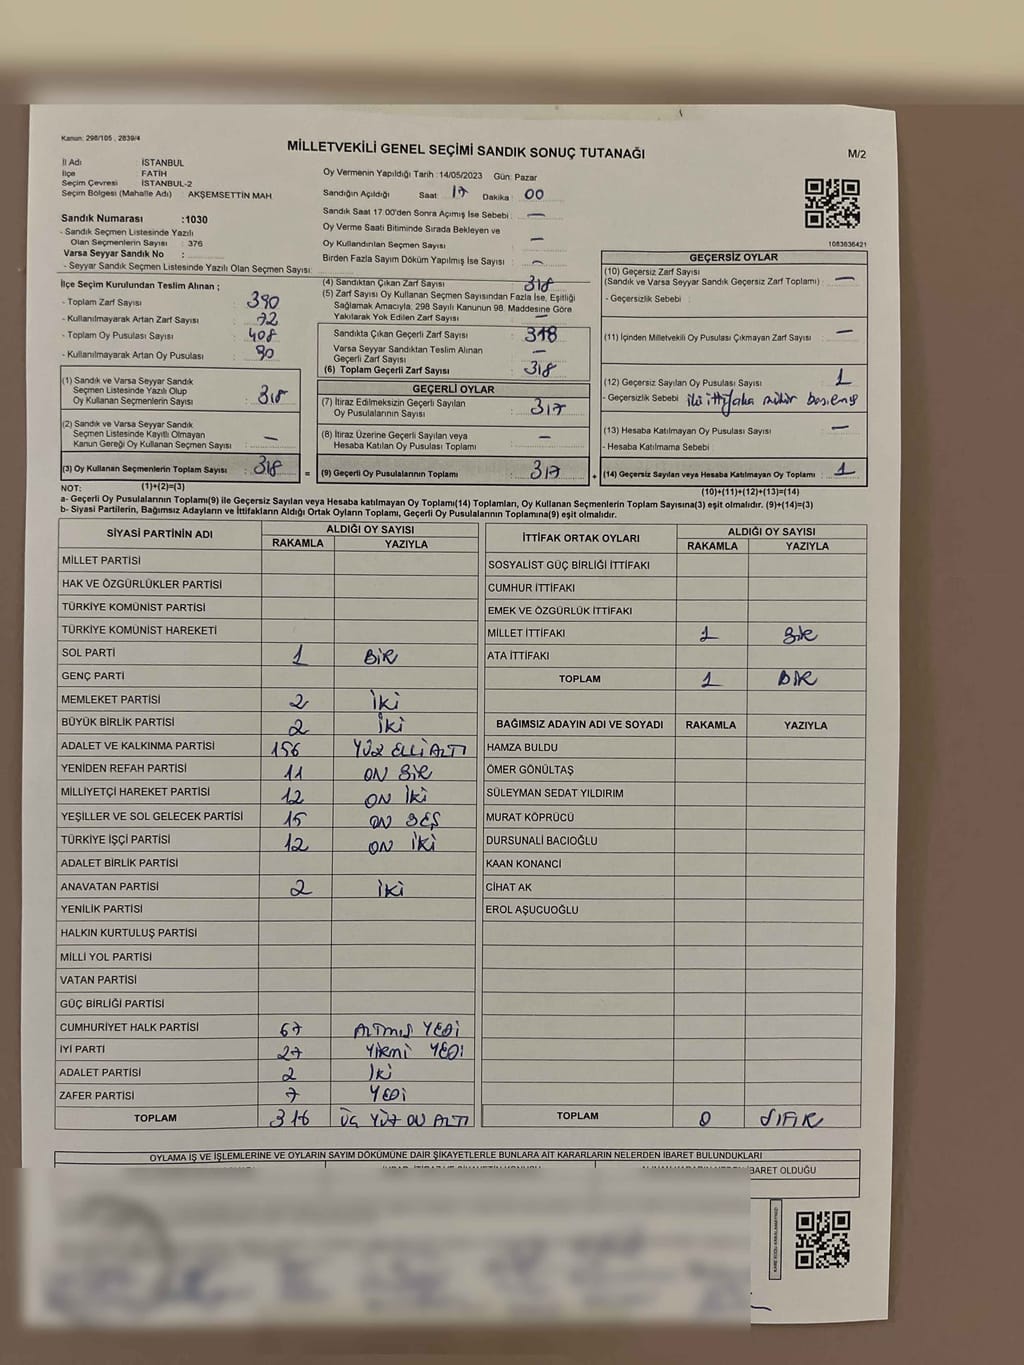 Kanun: 298/105 , 2839/4
MİLLETVEKİLİ GENEL SEÇİMİ SANDIK SONUÇ TUTANAĞI
M/2
İl Adı : İSTANBUL
İlçe : FATİH
Seçim Çevresi : İSTANBUL-2
Seçim Bölgesi (Mahalle Adı) : AKŞEMSETTİN MAH
Sandık Numarası :1030
- Sandık Seçmen Listesinde Yazılı
Olan Seçmenlerin Sayısı : 376
Varsa Seyyar Sandık No :
- Seyyar Sandık Seçmen Listesinde Yazılı Olan Seçmen Sayısı:
Oy Vermenin Yapıldığı Tarih :14/05/2023 Gün: Pazar
Sandığın Açıldığı Saat : 17 Dakika : 00
Sandık Saat 17.00'den Sonra Açımış İse Sebebi : —
Oy Verme Saati Bitiminde Sırada Bekleyen ve
Oy Kullandırılan Seçmen Sayısı : —
Birden Fazla Sayım Döküm Yapılmış İse Sayısı : —
1083636421
İlçe Seçim Kurulundan Teslim Alınan ;
- Toplam Zarf Sayısı : 390
- Kullanılmayarak Artan Zarf Sayısı : 72
- Toplam Oy Pusulası Sayısı : 408
- Kullanılmayarak Artan Oy Pusulası : 90
(1) Sandık ve Varsa Seyyar Sandık
Seçmen Listesinde Yazılı Olup
Oy Kullanan Seçmenlerin Sayısı : 318
(2) Sandık ve Varsa Seyyar Sandık
Seçmen Listesinde Kayıtlı Olmayan
Kanun Gereği Oy Kullanan Seçmen Sayısı : —
(3) Oy Kullanan Seçmenlerin Toplam Sayısı : 318
(4) Sandıktan Çıkan Zarf Sayısı : 318
(5) Zarf Sayısı Oy Kullanan Seçmen Sayısından Fazla İse, Eşitliği
Sağlamak Amacıyla, 298 Sayılı Kanunun 98. Maddesine Göre
Yakılarak Yok Edilen Zarf Sayısı : —
Sandıkta Çıkan Geçerli Zarf Sayısı : 318
Varsa Seyyar Sandıktan Teslim Alınan
Geçerli Zarf Sayısı : —
(6) Toplam Geçerli Zarf Sayısı : 318
GEÇERLİ OYLAR
(7) İtiraz Edilmeksizin Geçerli Sayılan
Oy Pusulalarının Sayısı : 317
(8) İtiraz Üzerine Geçerli Sayılan veya
Hesaba Katılan Oy Pusulası Toplamı : —
= (9) Geçerli Oy Pusulalarının Toplamı : 317
GEÇERSİZ OYLAR
(10) Geçersiz Zarf Sayısı
(Sandık ve Varsa Seyyar Sandık Geçersiz Zarf Toplamı) : —
- Geçersizlik Sebebi :
(11) İçinden Milletvekili Oy Pusulası Çıkmayan Zarf Sayısı : —
(12) Geçersiz Sayılan Oy Pusulası Sayısı : 1
- Geçersizlik Sebebi iki ittifaka mühür basılmış
(13) Hesaba Katılmayan Oy Pusulası Sayısı : —
- Hesaba Katılmama Sebebi
+ (14) Geçersiz Sayılan veya Hesaba Katılmayan Oy Toplamı : 1
NOT: (1)+(2)=(3)
(10)+(11)+(12)+(13)=(14)
a- Geçerli Oy Pusulalarının Toplamı(9) ile Geçersiz Sayılan veya Hesaba katılmayan Oy Toplamı(14) Toplamları, Oy Kullanan Seçmenlerin Toplam Sayısına(3) eşit olmalıdır. (9)+(14)=(3)
b- Siyasi Partilerin, Bağımsız Adayların ve İttifakların Aldığı Ortak Oyların Toplamı, Geçerli Oy Pusulalarının Toplamına(9) eşit olmalıdır.
SİYASİ PARTİNİN ADI ALDIĞI OY SAYISI
RAKAMLA YAZIYLA
MİLLET PARTİSİ
HAK VE ÖZGÜRLÜKLER PARTİSİ
TÜRKİYE KOMÜNİST PARTİSİ
TÜRKİYE KOMÜNİST HAREKETİ
SOL PARTİ 1 BİR
GENÇ PARTİ
MEMLEKET PARTİSİ 2 İKİ
BÜYÜK BİRLİK PARTİSİ 2 İKİ
ADALET VE KALKINMA PARTİSİ 156 YÜZ ELLİ ALTI
YENİDEN REFAH PARTİSİ 11 ON BİR
MİLLİYETÇİ HAREKET PARTİSİ 12 ON İKİ
YEŞİLLER VE SOL GELECEK PARTİSİ 15 ON BEŞ
TÜRKİYE İŞÇİ PARTİSİ 12 ON İKİ
ADALET BİRLİK PARTİSİ
ANAVATAN PARTİSİ 2 İKİ
YENİLİK PARTİSİ
HALKIN KURTULUŞ PARTİSİ
MİLLİ YOL PARTİSİ
VATAN PARTİSİ
GÜÇ BİRLİĞİ PARTİSİ
CUMHURİYET HALK PARTİSİ 67 ALTMIŞ YEDİ
İYİ PARTİ 27 YİRMİ YEDİ
ADALET PARTİSİ 2 İKİ
ZAFER PARTİSİ 7 YEDİ
TOPLAM 316 ÜÇ YÜZ ON ALTI
İTTİFAK ORTAK OYLARI ALDIĞI OY SAYISI
RAKAMLA YAZIYLA
SOSYALİST GÜÇ BİRLİĞİ İTTİFAKI
CUMHUR İTTİFAKI
EMEK VE ÖZGÜRLÜK İTTİFAKI
MİLLET İTTİFAKI 1 BİR
ATA İTTİFAKI
TOPLAM 1 BİR
BAĞIMSIZ ADAYIN ADI VE SOYADI RAKAMLA YAZIYLA
HAMZA BULDU
ÖMER GÖNÜLTAŞ
SÜLEYMAN SEDAT YILDIRIM
MURAT KÖPRÜCÜ
DURSUNALİ BACIOĞLU
KAAN KONANCİ
CİHAT AK
EROL AŞUCUOĞLU
TOPLAM 0 SIFIR
OYLAMA İŞ VE İŞLEMLERİNE VE OYLARIN SAYIM DÖKÜMÜNE DAİR ŞİKAYETLERLE BUNLARA AİT KARARLARIN NELERDEN İBARET BULUNDUKLARI
İBARET OLDUĞU